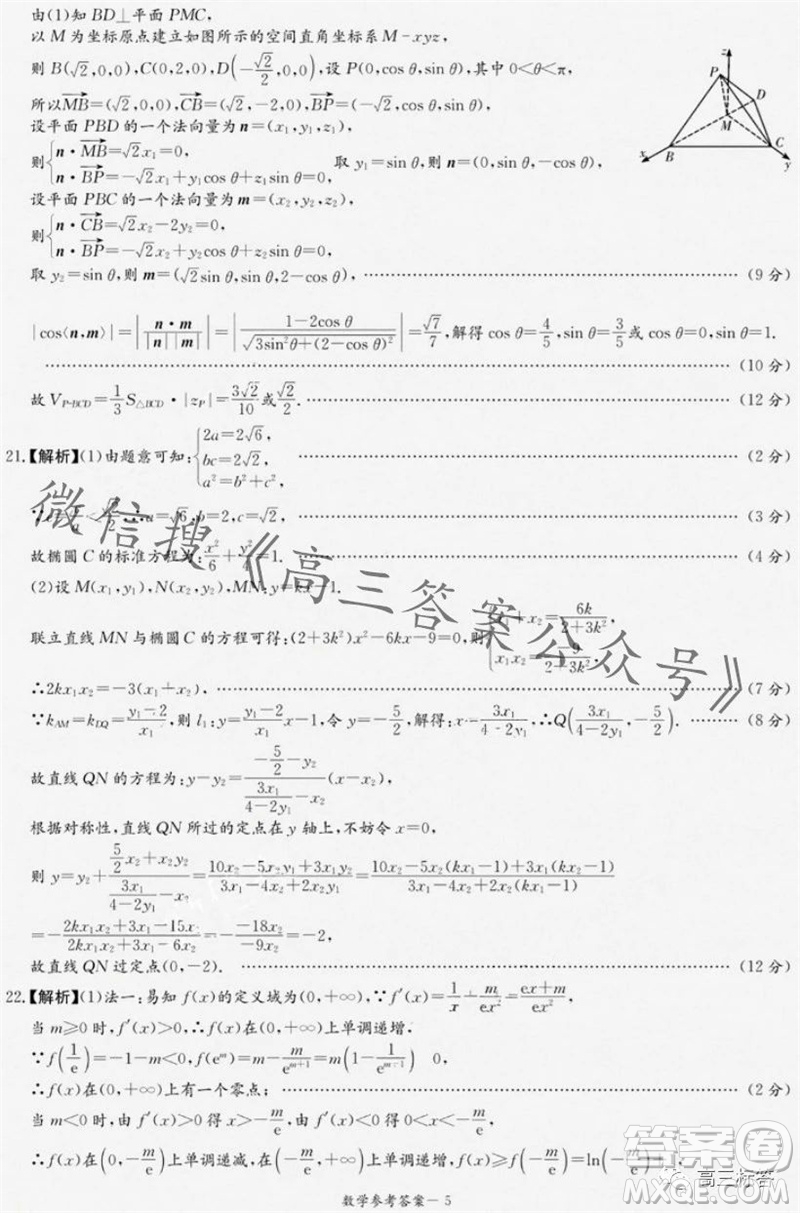 由(1)知 BD⊥平面 PMC,
以 M 为坐标原点建立如图所示的空间直角坐标系 M-xyz,
则 B(√2,0,0),C(0,2,0),D(-√2/2,0,0),设 P(0,cos θ,sin θ),其中 0<θ<π,
所以MB=(√2,0,0),CB=(√2,-2,0),BP=(-√2,cos θ,sin θ),
设平面 PBD 的一个法向量为 n=(x₁,y₁,z₁),
则{n·MB=√2x₁=0, n·BP=-√2x₁+y₁cos θ+z₁sin θ=0, 取 y₁=sin θ,则 n=(0,sin θ,-cos θ),
设平面 PBC 的一个法向量为 m=(x₂,y₂,z₂),
则{n·CB=√2x₂-2y₂=0, n·BP=-√2x₂+y₂cos θ+z₂sin θ=0,
取 y₂=sin θ,则 m=(√2sin θ,sin θ,2-cos θ), (9 分)
|cos⟨n,m⟩|=|n·m/|n||m||=|(1-2cos θ)/√(3sin²θ+(2-cos θ)²)|=√7/7,解得 cos θ=4/5,sin θ=3/5或 cos θ=0,sin θ=1.
(10 分)
故 V_{P-BCD}=1/3 S_{△BCD}·|z_P|=3√2/10或√2/2. (12 分)
21.【解析】(1)由题意可知:{2a=2√6, bc=2√2, a²=b²+c², (2 分)
∴a=√6,b=2,c=√2, (3 分)
故椭圆 C 的标准方程为:x²/6+y²/4=1. (4 分)
(2)设 M(x₁,y₁),N(x₂,y₂),MN:y=kx-1.
联立直线 MN 与椭圆 C 的方程可得:(2+3k²)x²-6kx-9=0,则{x₁+x₂=6k/(2+3k²), x₁x₂=-9/(2+3k²).
∴2kx₁x₂=-3(x₁+x₂). (7 分)
∵k_{AM}=k_{DQ}=(y₁-2)/x₁,则 l₁:y=(y₁-2)/x₁ x-1,令 y=-5/2,解得:x=3x₁/(4-2y₁),∴Q(3x₁/(4-2y₁),-5/2). (8 分)
故直线 QN 的方程为:y-y₂=(-5/2-y₂)/(3x₁/(4-2y₁)-x₂)(x-x₂),
根据对称性,直线 QN 所过的定点在 y 轴上,不妨令 x=0,
则 y=y₂+(5/2x₂+x₂y₂)/(3x₁/(4-2y₁)-x₂)=(10x₂-5x₂y₁+3x₁y₂)/(3x₁-4x₂+2x₂y₁)=(10x₂-5x₂(kx₁-1)+3x₁(kx₂-1))/(3x₁-4x₂+2x₂(kx₁-1))
=-(2kx₁x₂+3x₁-15x₂)/(2kx₁x₂+3x₁-6x₂)=-(-18x₂)/(-9x₂)=-2,
故直线 QN 过定点(0,-2). (12 分)
22.【解析】(1)法一:易知 f(x)的定义域为(0,+∞),∵f′(x)=1/x+m/ex²=(ex+m)/ex²,
当 m≥0 时,f′(x)>0,∴f(x)在(0,+∞)上单调递增.
∵f(1/e)=-1-m<0,f(eᵐ)=m-m/e^{m+1}=m(1-1/e^{m+1}) 0,
∴f(x)在(0,+∞)上有一个零点; (2 分)
当 m<0 时,由 f′(x)>0 得 x>-m/e,由 f′(x)<0 得 0<x<-m/e,
∴f(x)在(0,-m/e)上单调递减,在(-m/e,+∞)上单调递增,f(x)≥f(-m/e)=ln(-m/e)
数学参考答案-5
z
P
D
M
B
C
x
y
微信搜《高三答案公众号》
答案圈
高三标答